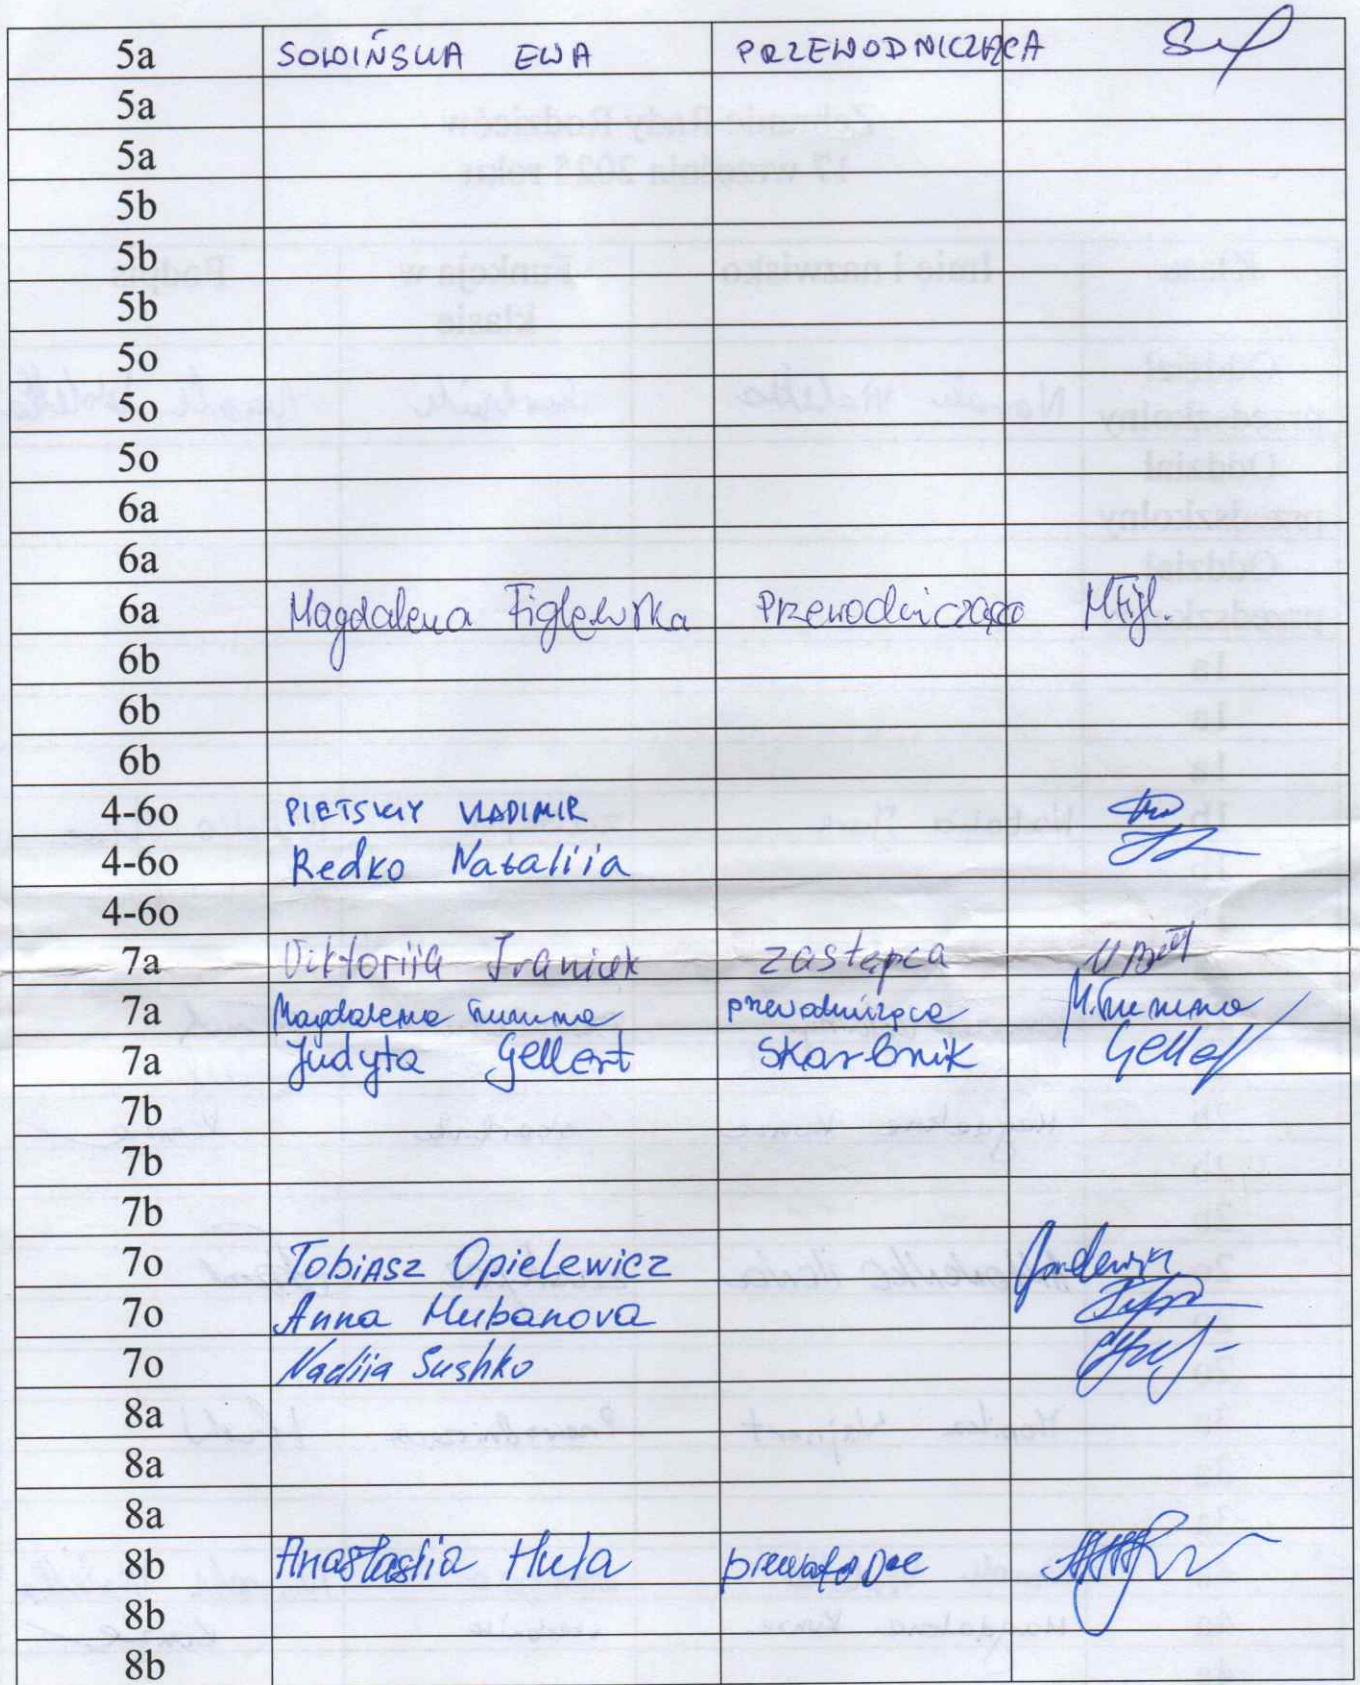 5a SOWIŃSKA EWA PRZEWODNICZĄCA
5a
5a
5b
5b
5b
5o
5o
5o
6a
6a
6a Magdalena Figlewska Przewodnicząca MFigl.
6b
6b
6b
4-6o PIETSKIY VLADIMIR
4-6o Redko Nataliia
4-6o
7a Viktoriia Franiek zastępca
7a Magdalena przewodnicząca
7a Judyta Gellert Skarbnik Gellert
7b
7b
7b
7o Tobiasz Opielewicz
7o Anna Hubanova
7o Nadiia Sushko
8a
8a
8a
8b Anastasiia Hula
8b
8b